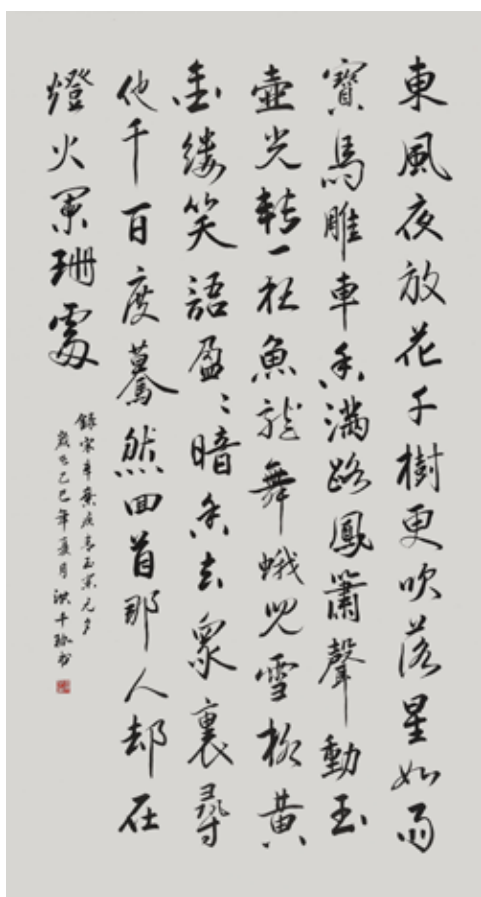 東風夜放花千樹更吹落星如雨
寶馬雕車香滿路鳳簫聲動玉
壺光轉一夜魚龍舞蛾兒雪柳黃
金縷笑語盈〻暗香去眾裏尋
他千百度驀然回首那人却在
燈火闌珊處
錄宋辛棄疾青玉案元夕
巳年夏月洪千书